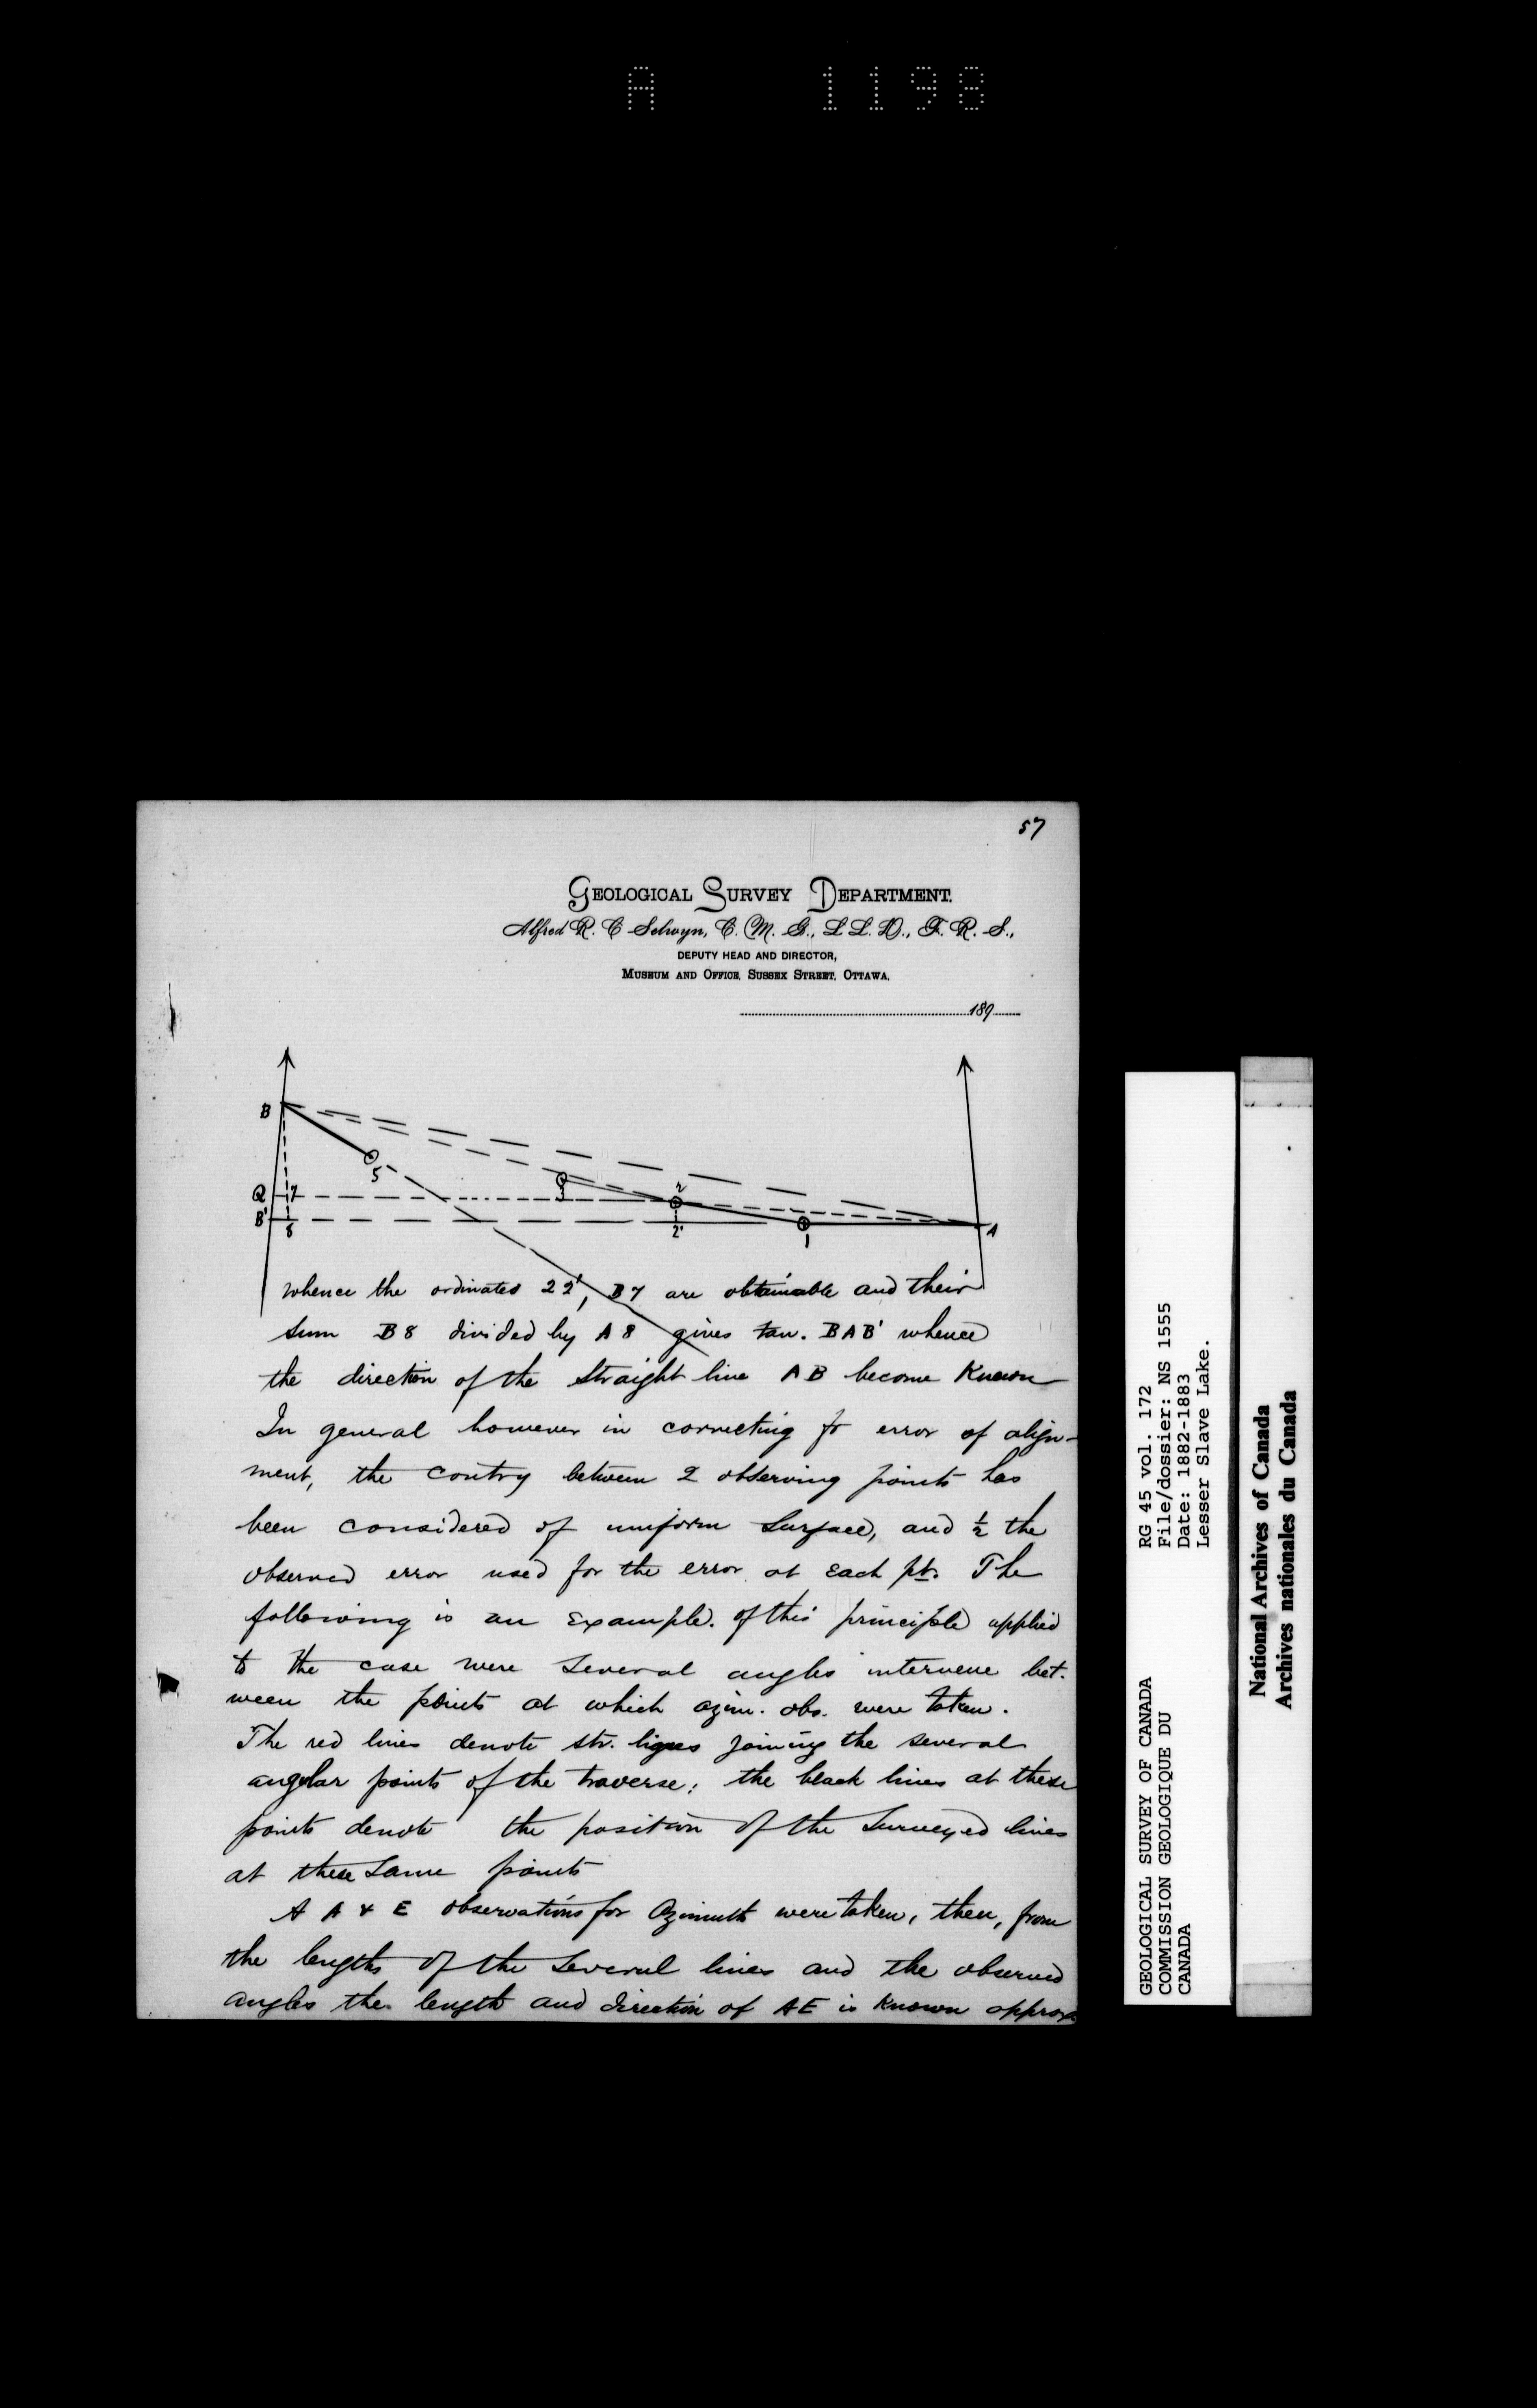 A 1198
57
GEOLOGICAL SURVEY DEPARTMENT.
Alfred R. C Selwyn, C. M. G., L L. D., F. R. S.,
DEPUTY HEAD AND DIRECTOR,
MUSEUM AND OFFICE, SUSSEX STREET, OTTAWA.
189
B
5
Q 7 3 2
B' 8 2' 1 A
whence the ordinates 22', B7 are obtainable and their
sum B8 divided by A8 gives tan. BAB' whence
the direction of the straight line AB become known
In general however in correcting for error of align-
ment, the contry between 2 observing points has
been considered of uniform surface, and ½ the
observed error used for the error at each pt. The
following is an example. of this principle applied
to the case were several angles intervene bet.
ween the points at which azim. obs. were taken.
The red lines denote str. lines joining the several
angular points of the traverse; the black lines at these
points denote the position of the surveyed lines
at these same points
At A & E observations for Azimuth were taken, then, from
the lengths of the several lines and the observed
angles the length and direction of AE is known approx
GEOLOGICAL SURVEY OF CANADA
COMMISSION GEOLOGIQUE DU
CANADA
RG 45 vol. 172
File/dossier: NS 1555
Date: 1882-1883
Lesser Slave Lake.
National Archives of Canada
Archives nationales du Canada